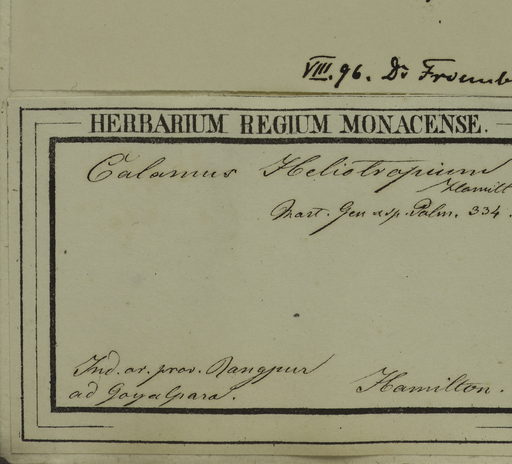 VIII. 96. Dr Fromb
HERBARIUM REGIUM MONACENSE.
Calamus Heliotropium
Hamilt
Mart. Gen. & sp. Palm. 334.
Ind. or. prov. Rangpur
ad Goyalpara.
Hamilton.